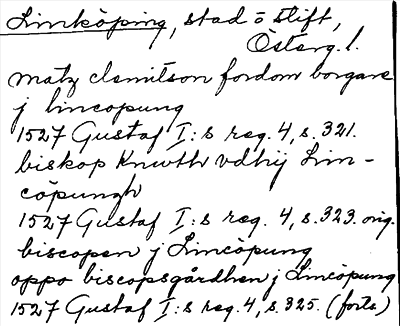 Linköping, stad o stift,
Österg. l.
matz clemitson fordom borgare
j lincopung
1527 Gustaf I:s reg. 4, s. 321.
biskop Knwth vdhij Lim-
cöpungh
1527 Gustaf I:s reg. 4, s. 323. orig.
biscopen j Limcöpung
oppo biscopsgårdhen j Limcöpung
1527 Gustaf I:s reg. 4, s. 325. (forts)